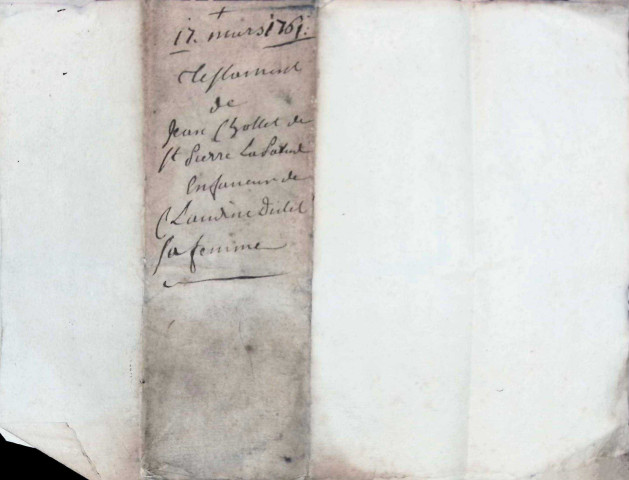 17. mars 1761.
Testament
de
Jean Chollet de
St Pierre La Palud
En faueur de
Claudine Dulet
sa femme